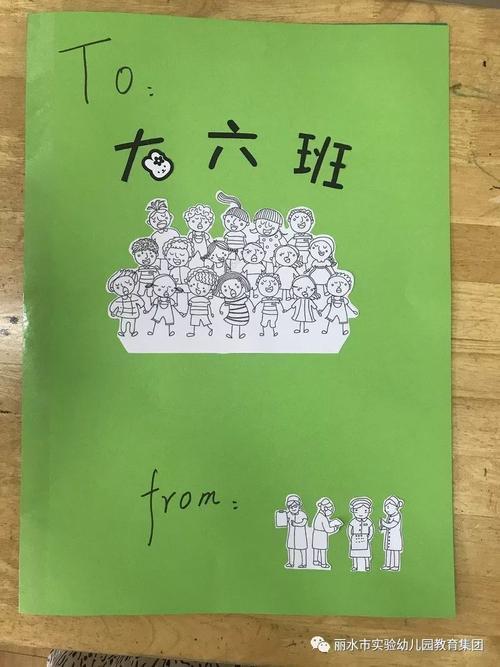 To:
大六班
from:
丽水市实验幼儿园教育集团